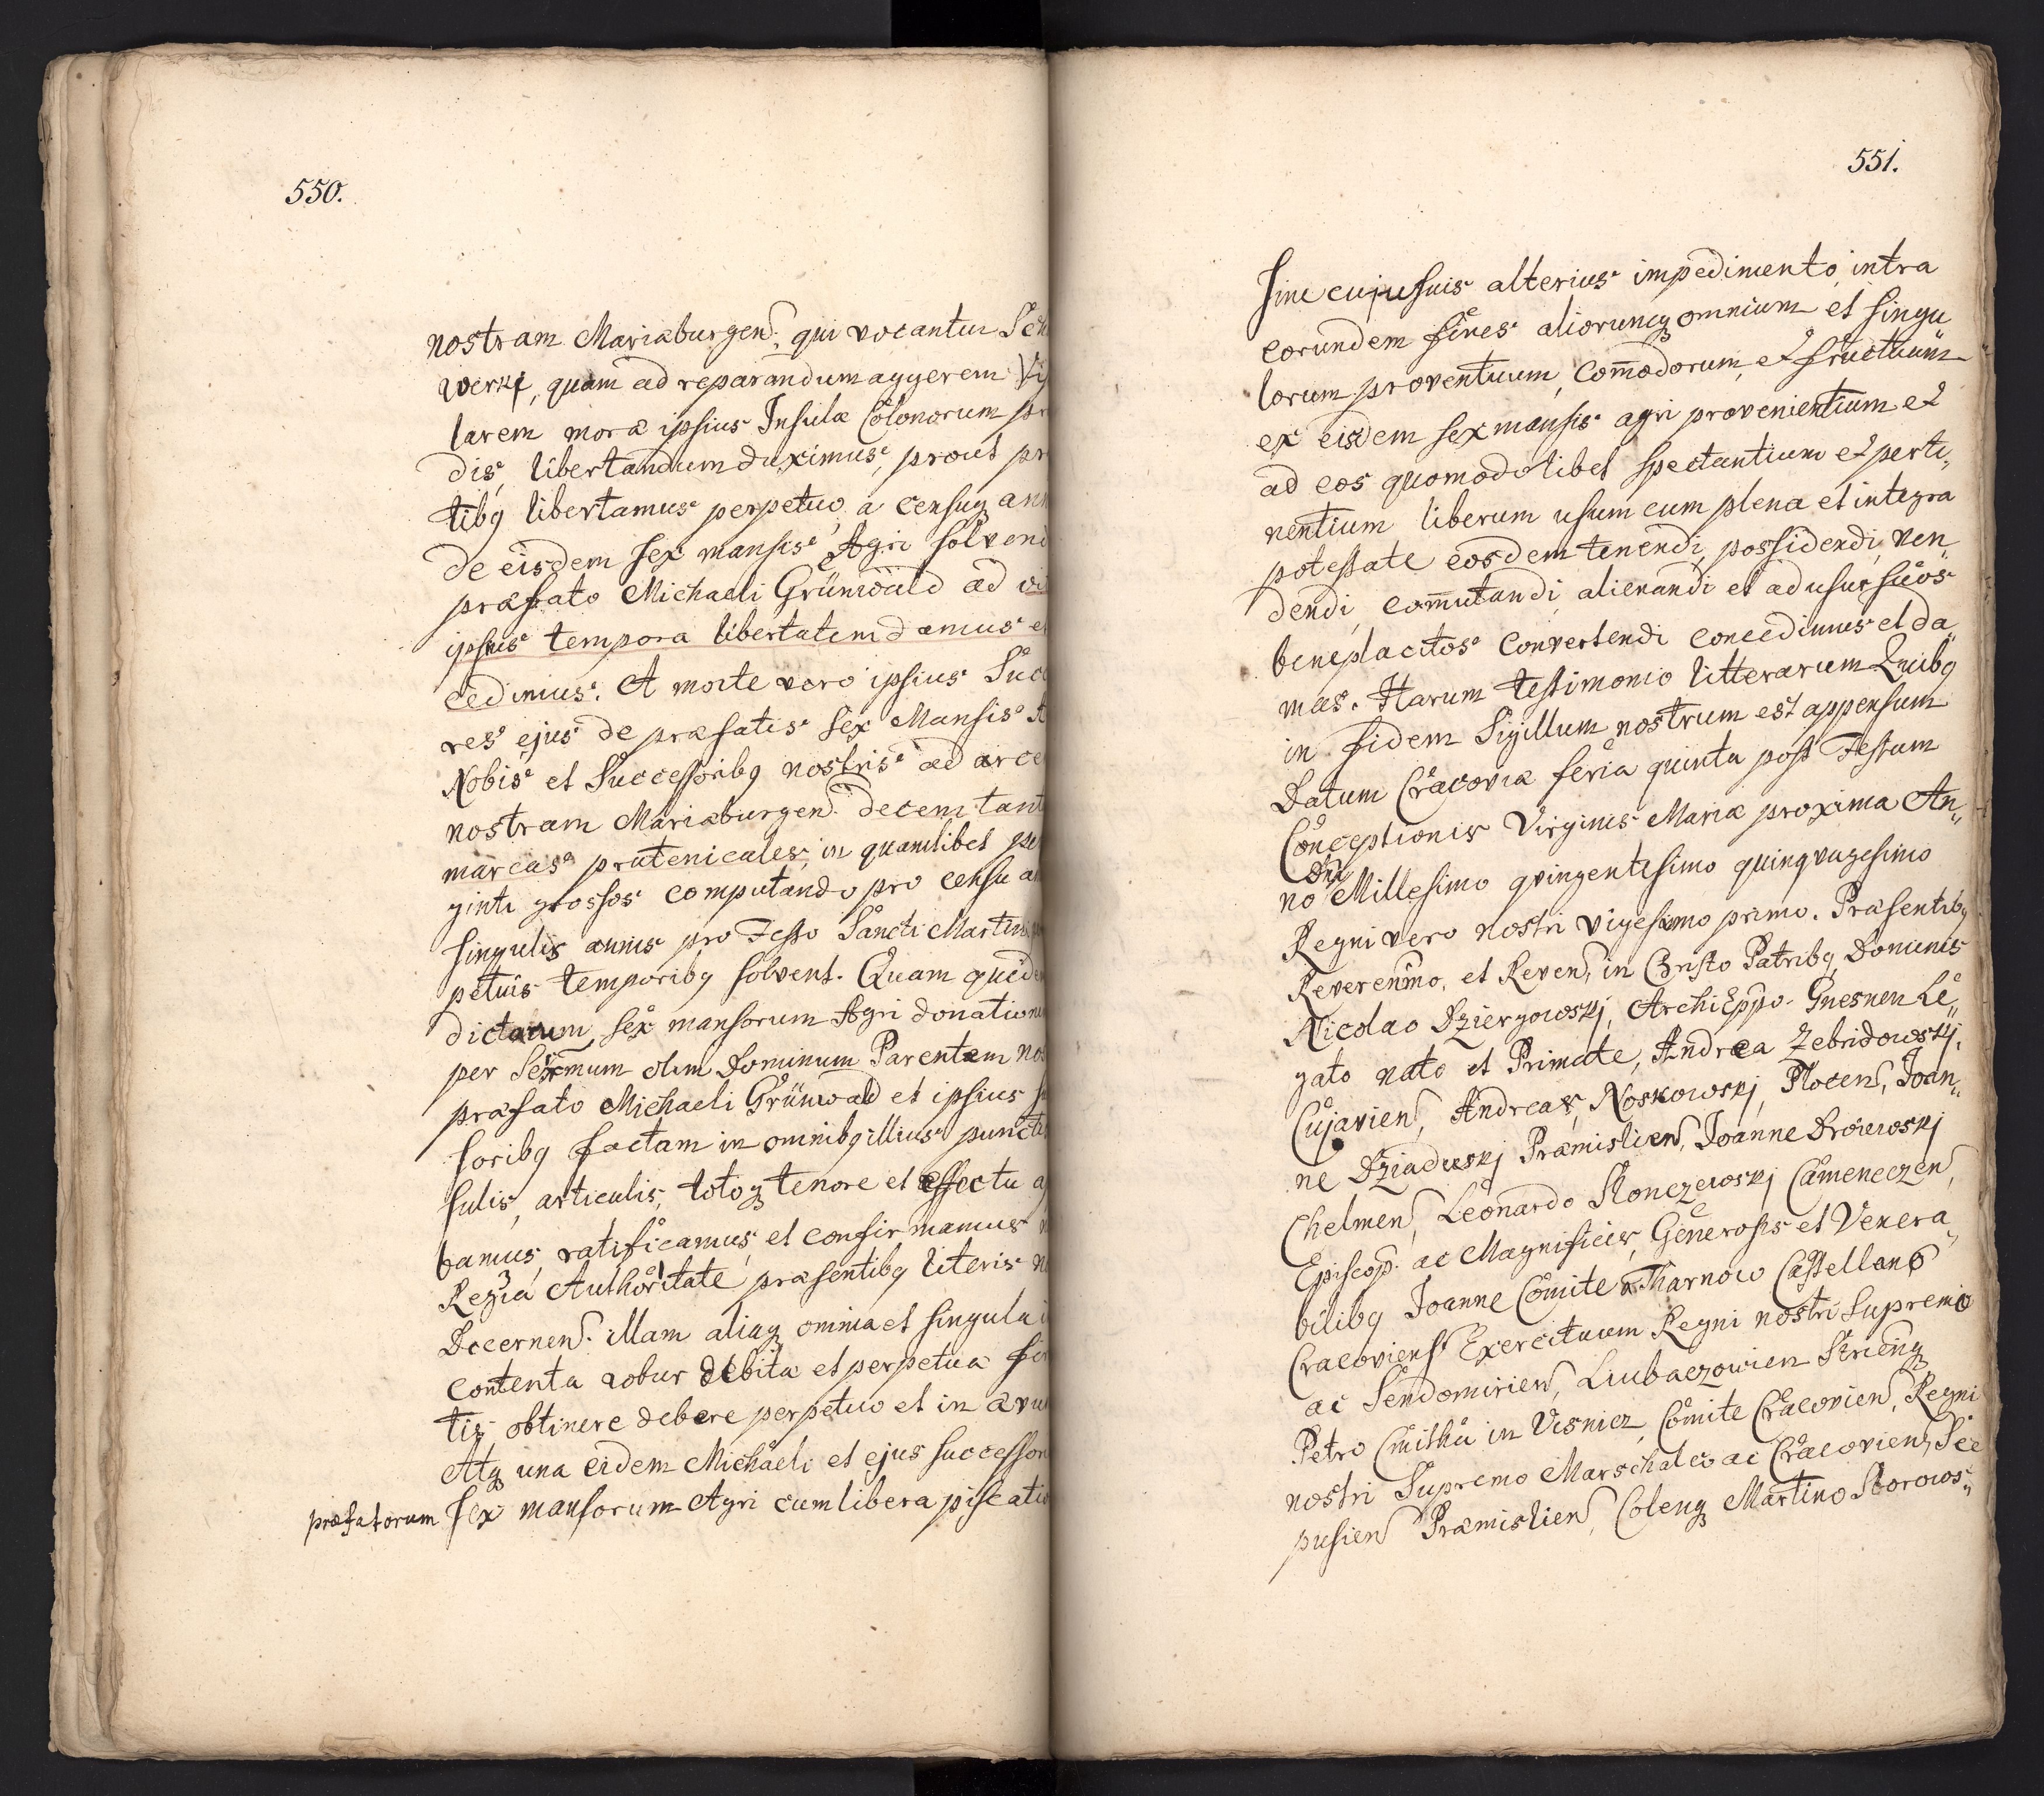 550.
nostram Mariæburgen. qui vocantur Sch
werkj, quam ad reparandum aggerem
larem mora ipsius Insulæ Colonorum
dis, libertandum duximus, prout
tibq libertamus perpetuo, a censuq ann
de eisdem sex mansis Agri solvend
præfato Michaeli Grünwald ad vi
ipsius tempora libertatem damus et
cedimus. A morte vero ipsius Succ
res ejus de præfatis sex Mansis A
Nobis et Successoribq nostris ad arce
nostram Mariæburgen. decem tant
marcas prutenicales, in quamlibet
ginti grossos computando pro censu an
singulis annis pro Festo Sancti Martini
petuis temporibq solvent. Quam quide
dictarum sex mansorum Agri donation
per Serenmum olim Dominum Parentem nos
præfato Michaeli Grünwald et ipsius
soribq factam in omnibq illius puncti
sulis, articulis, totoq tenore et effectu
bamus, ratificamus, et confirmamus
Regia Authoritate præsentibq literis n
Decernen. illam aliaq omnia et singula
contenta robur debitæ et perpetuæ fir
tis obtinere debere perpetuo et in ævu
Atq una eidem Michaeli et ejus successor
præfatorum sex mansorum Agri cum libera piscatio
551.
sine cujusvis alterius impedimento intra
eorundem fines aliorumq omnium et singu
lorum proventuum, com̄odorum, et fructuum
ex eisdem sex mansis agri provenientium et
ad eos quomodolibet spectantium et perti„
nentium liberum usum cum plena et integra
potestate eosdem tenendi, possidendi, ven„
dendi, com̄utandi alienandi et ad usus suos
beneplacitos convertendi concedimus et da„
mus. Harum testimonio litterarum Quibq
in fidem Sigillum nostrum est appensum
Datum Cracoviæ feria quinta post Festum
Conceptionis Virginis Mariæ proxima An„
no Dni Millesimo qvingentesimo quinqvagesimo
Regni vero nostri vigesimo primo. Præsentibq
Reverenmo, et Reven, in Christo Patribq Dominis
Nicolao Dziergowskj, ArchiEppo. Gnesnen Le„
gato nato et Primate, Andrea Zebridowskj,
Cujavien, Andreas, Noskowskj, Plocen, Joan„
ne Dziaduskj Præmislien, Joanne Droiewskj
Chelmen, Leonardo Slonczewskj Cameneczen,
Episcop. ac Magnificis, Generosis et Venera„
bilibq Joanne Comite a Tharnow Castellano
Cracoviens Exercituum Regni nostri Supremo
ac Sendomirien, Liubaczowien Strienq
Petro Cmitha in Visnicz, Comite Cracovien, Regni
nostri Supremo Marschalco ac Cracovien, Sce
pusien Præmislien, Colenq Martino Sborows„